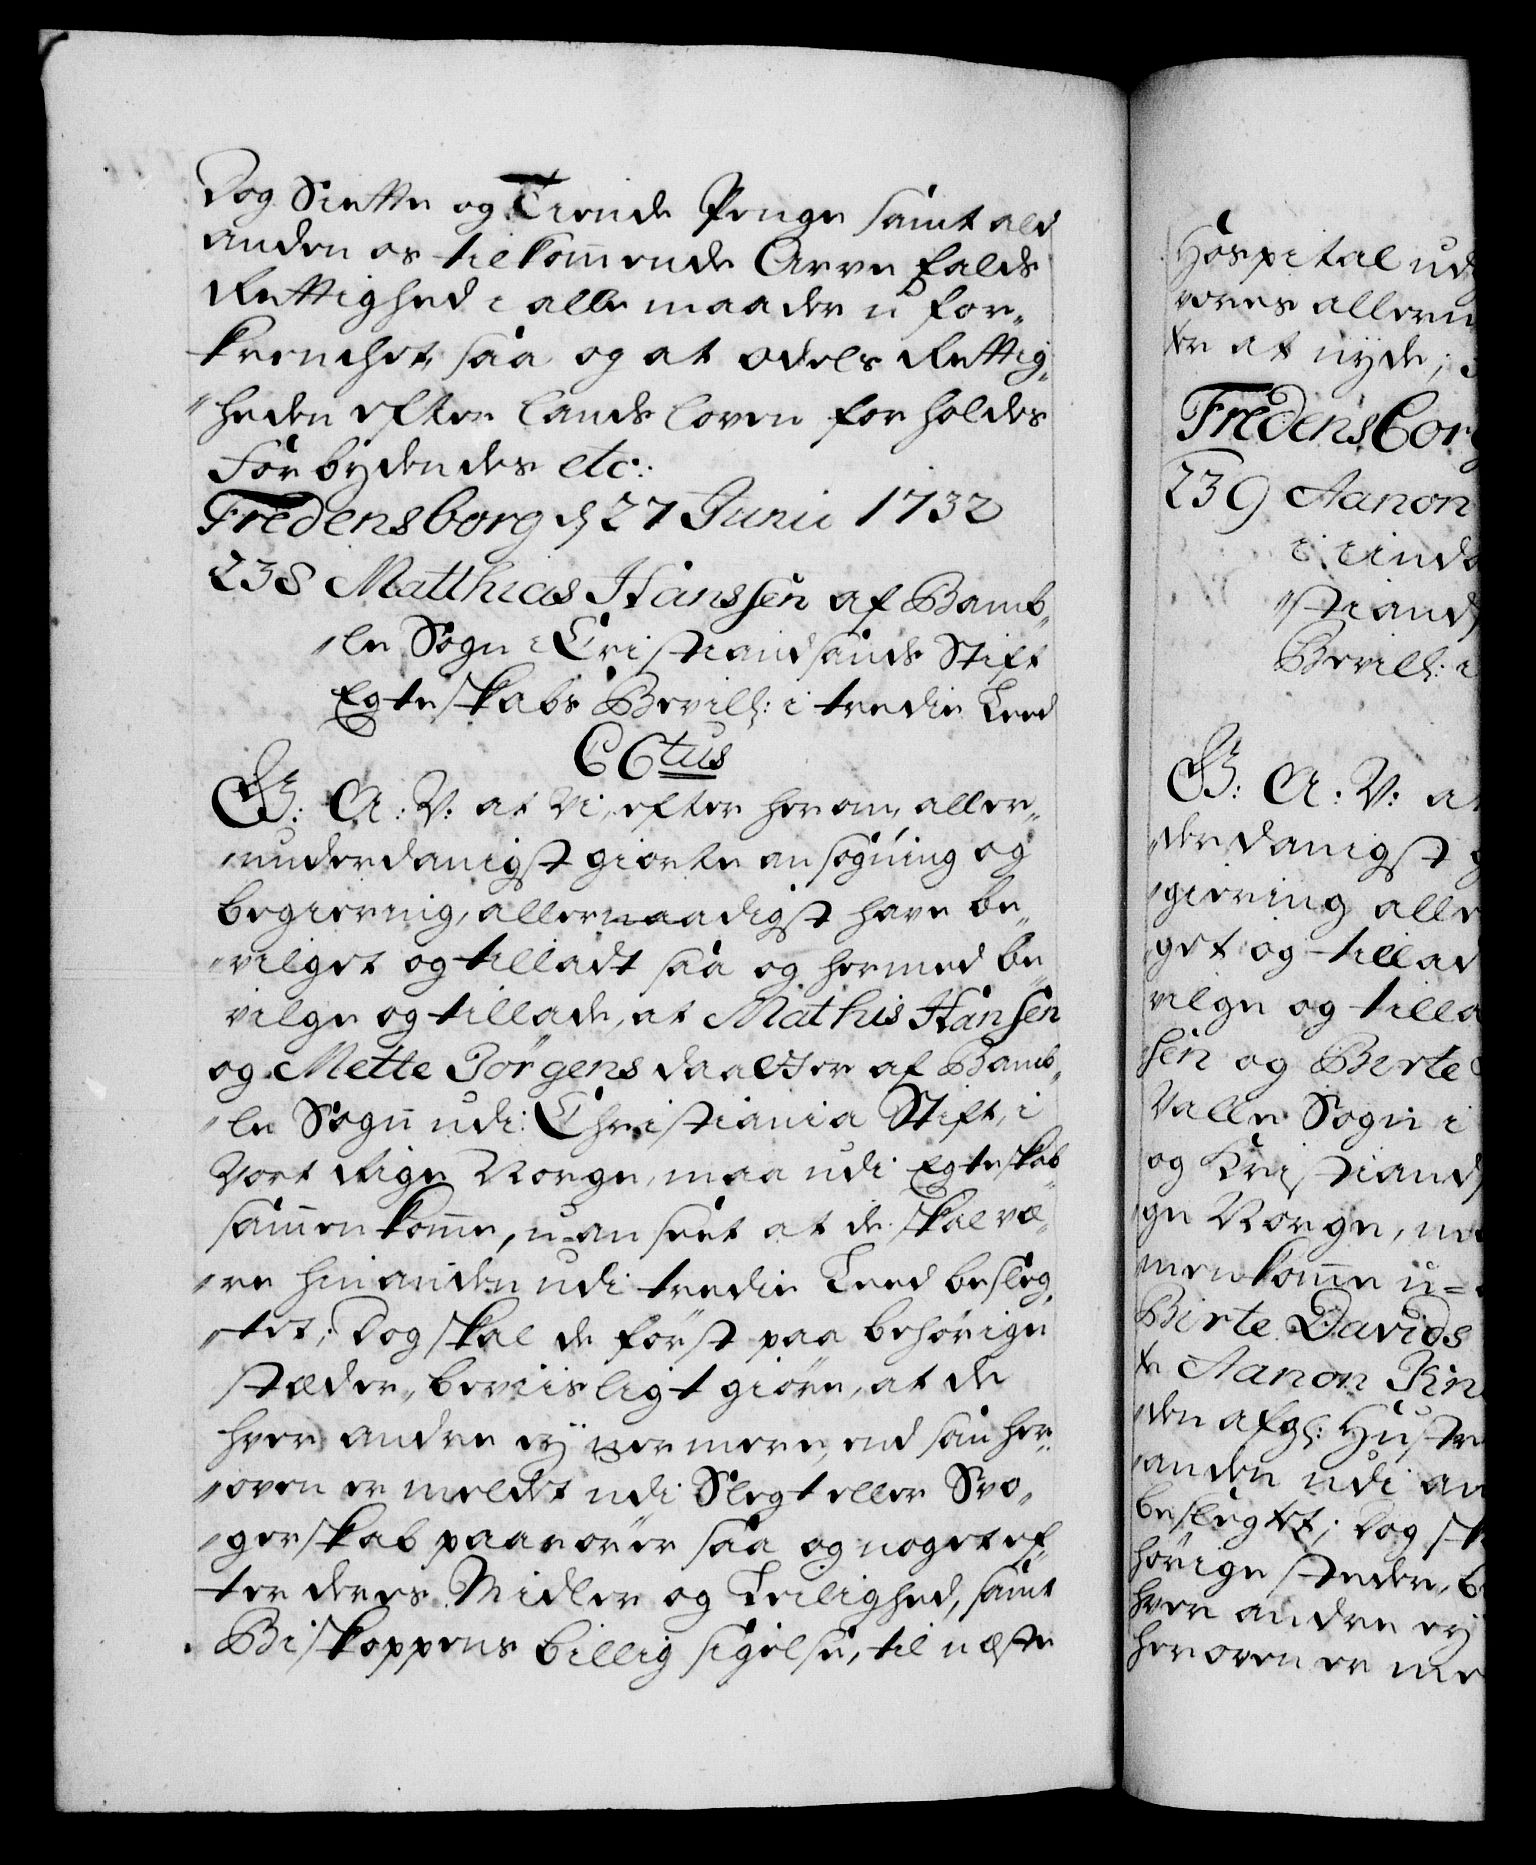 Dog Siette og Tiende Penge samt ald
anden os tilkom̅ende Arve falds
Rettighed i alle maader u for„
krencket, saa og at odels Rettig„
„heden efter lands loven forholdes
Forbydendes etc:
Fredensborg d 27 Junii 1732
238 Matthias Hanssen af Bamb„
„le Sogn i Cristiansands Stift
Egteskabs Bevill: i tredie Leed
C 6tus
G: A: V: at Vi, efter herom, aller„
„underdanigst giorte ansøgning og
begiering, allernaadigst have be„
„vilget og tilladt saa og hermed be„
vilge og tillade, at Mathis Hansen
og Mette Jörgens daatter af Bamb„
„le Sogn udi Christiania Stift, i
Vort Rige Norge, maa udi Egteskab
sam̅en kom̅e, u-anseet at de skal væ„
„re hinanden udi tredie Leed beslæg„
„tet; Dog skal de först paa behörige
stæder, beviisligt giöre, at de
hver andre ej nermere, end saa her„
„oven er meldet udi Slegt eller Svo„
„gerskab paarörer saa og noget ef„
ter deres Midler og Leilighed, samt
Biskoppens billig sigelse, til næste
Hospital ud
vores allerun
te at nyde;
Fredensborg
239 Aanon
„stiands
Bevill: i
G: A: V: at
„derdanigst g
„giering alle
get og tillad
vilge og tilla
sen og Birte
Valle Sogn i
og Kristiands
ge Norge, ma
men kom̅e u-
Birte Davids
te Aanon Kn
„den afg: Hustr
„anden udi an
beslegtet; Dog sk
hörige steder, b
hver andre ej
heroven er me